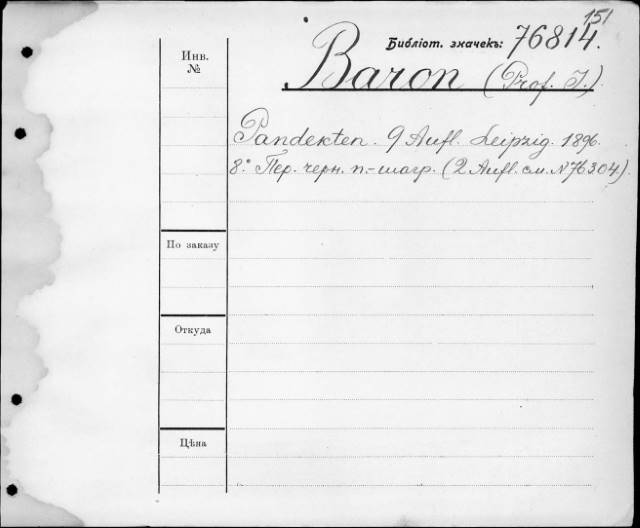 151
Библіот. значекъ: 76814.
Инв.
№
Baron (Prof. J.)
Pandekten. 9 Aufl. Leipzig. 1896.
8.° Пер. черн. п.-шагр. (2 Aufl. см. N 76304).
По заказу
Откуда
Цѣна